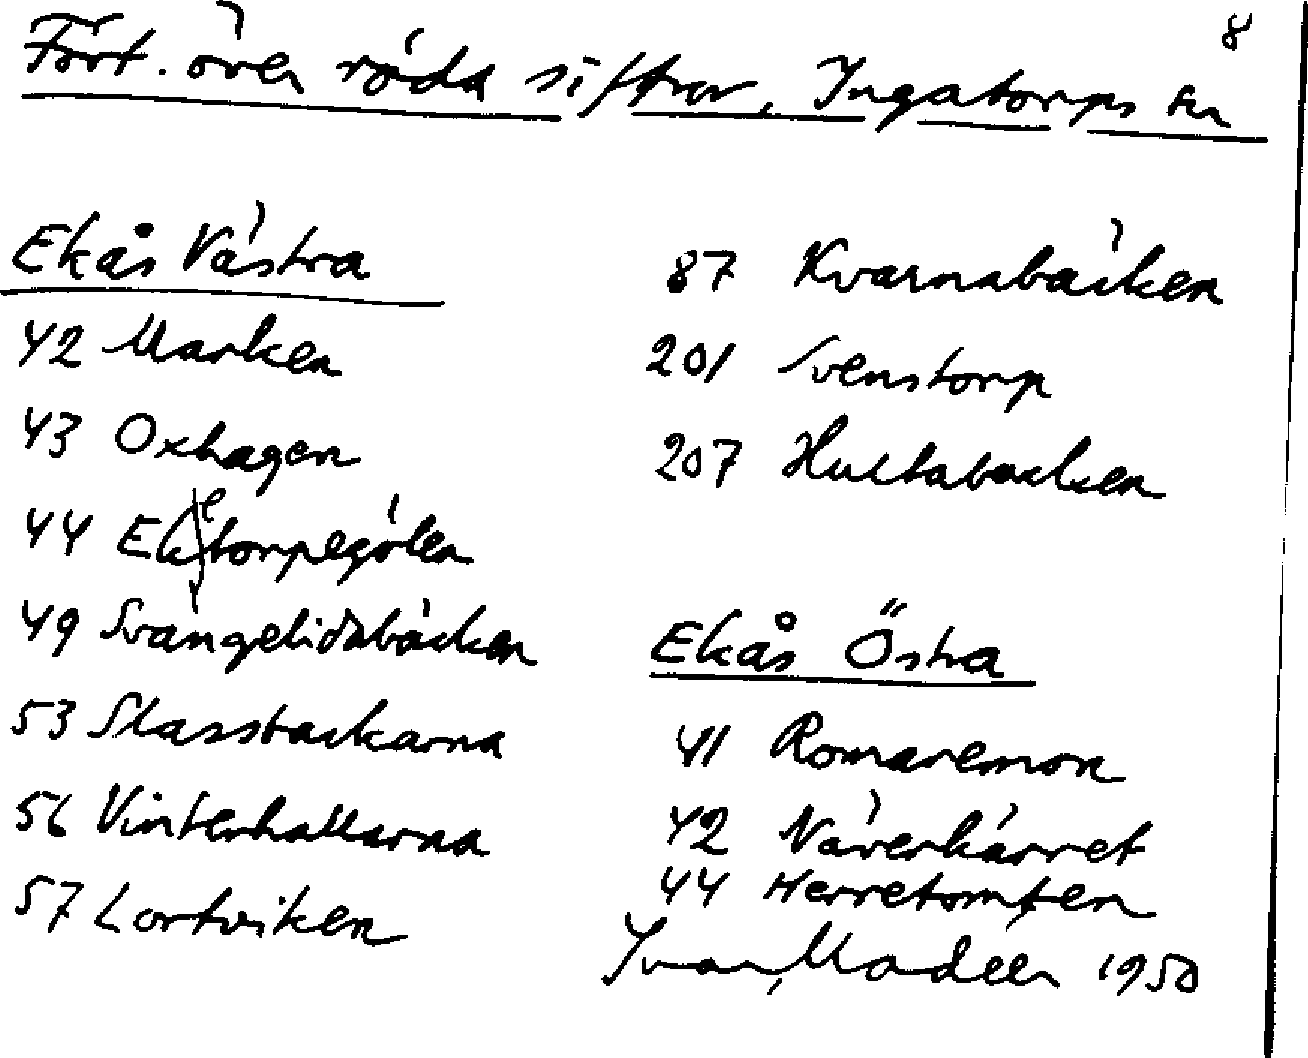 8
Fört. över röda siffror, Ingatorps sn
Ekås Västra
42 Marken
43 Oxhagen
44 Eketorpegölen
49 Svängelidsbäcken
53 Slasstackarna
56 Vinterhallarna
57 Lortviken
87 Kvarnabäcken
201 Svenstorp
207 Hultabacken
Ekås Östra
41 Romaremon
42 Näverkärret
44 Herretomten
Ivar Modéer 1950